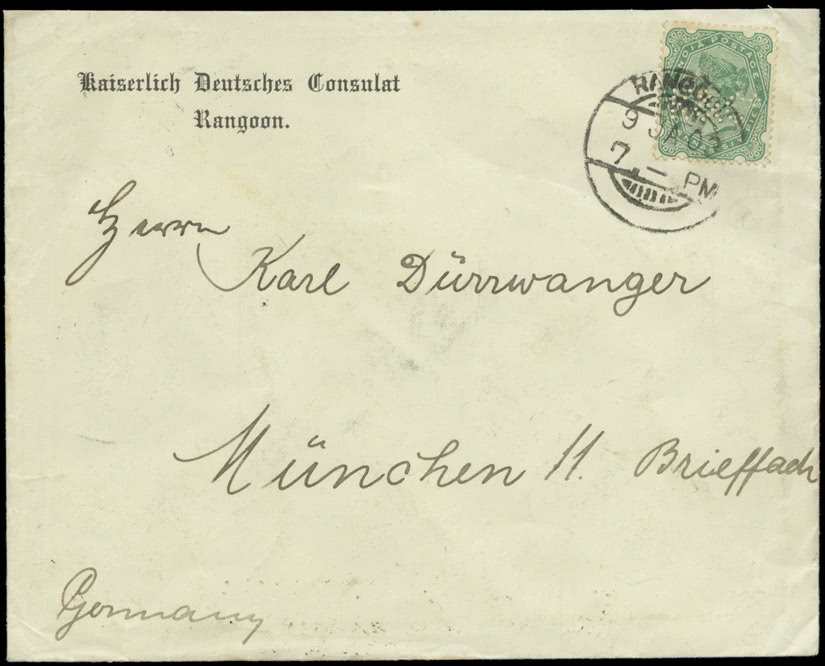 Kaiserlich Deutsches Consulat
Rangoon.
INDIA POSTAGE
RANGOON
9 JA 03
7 - PM
Herrn
Karl Dürrwanger
München 11. Brieffach
Germany